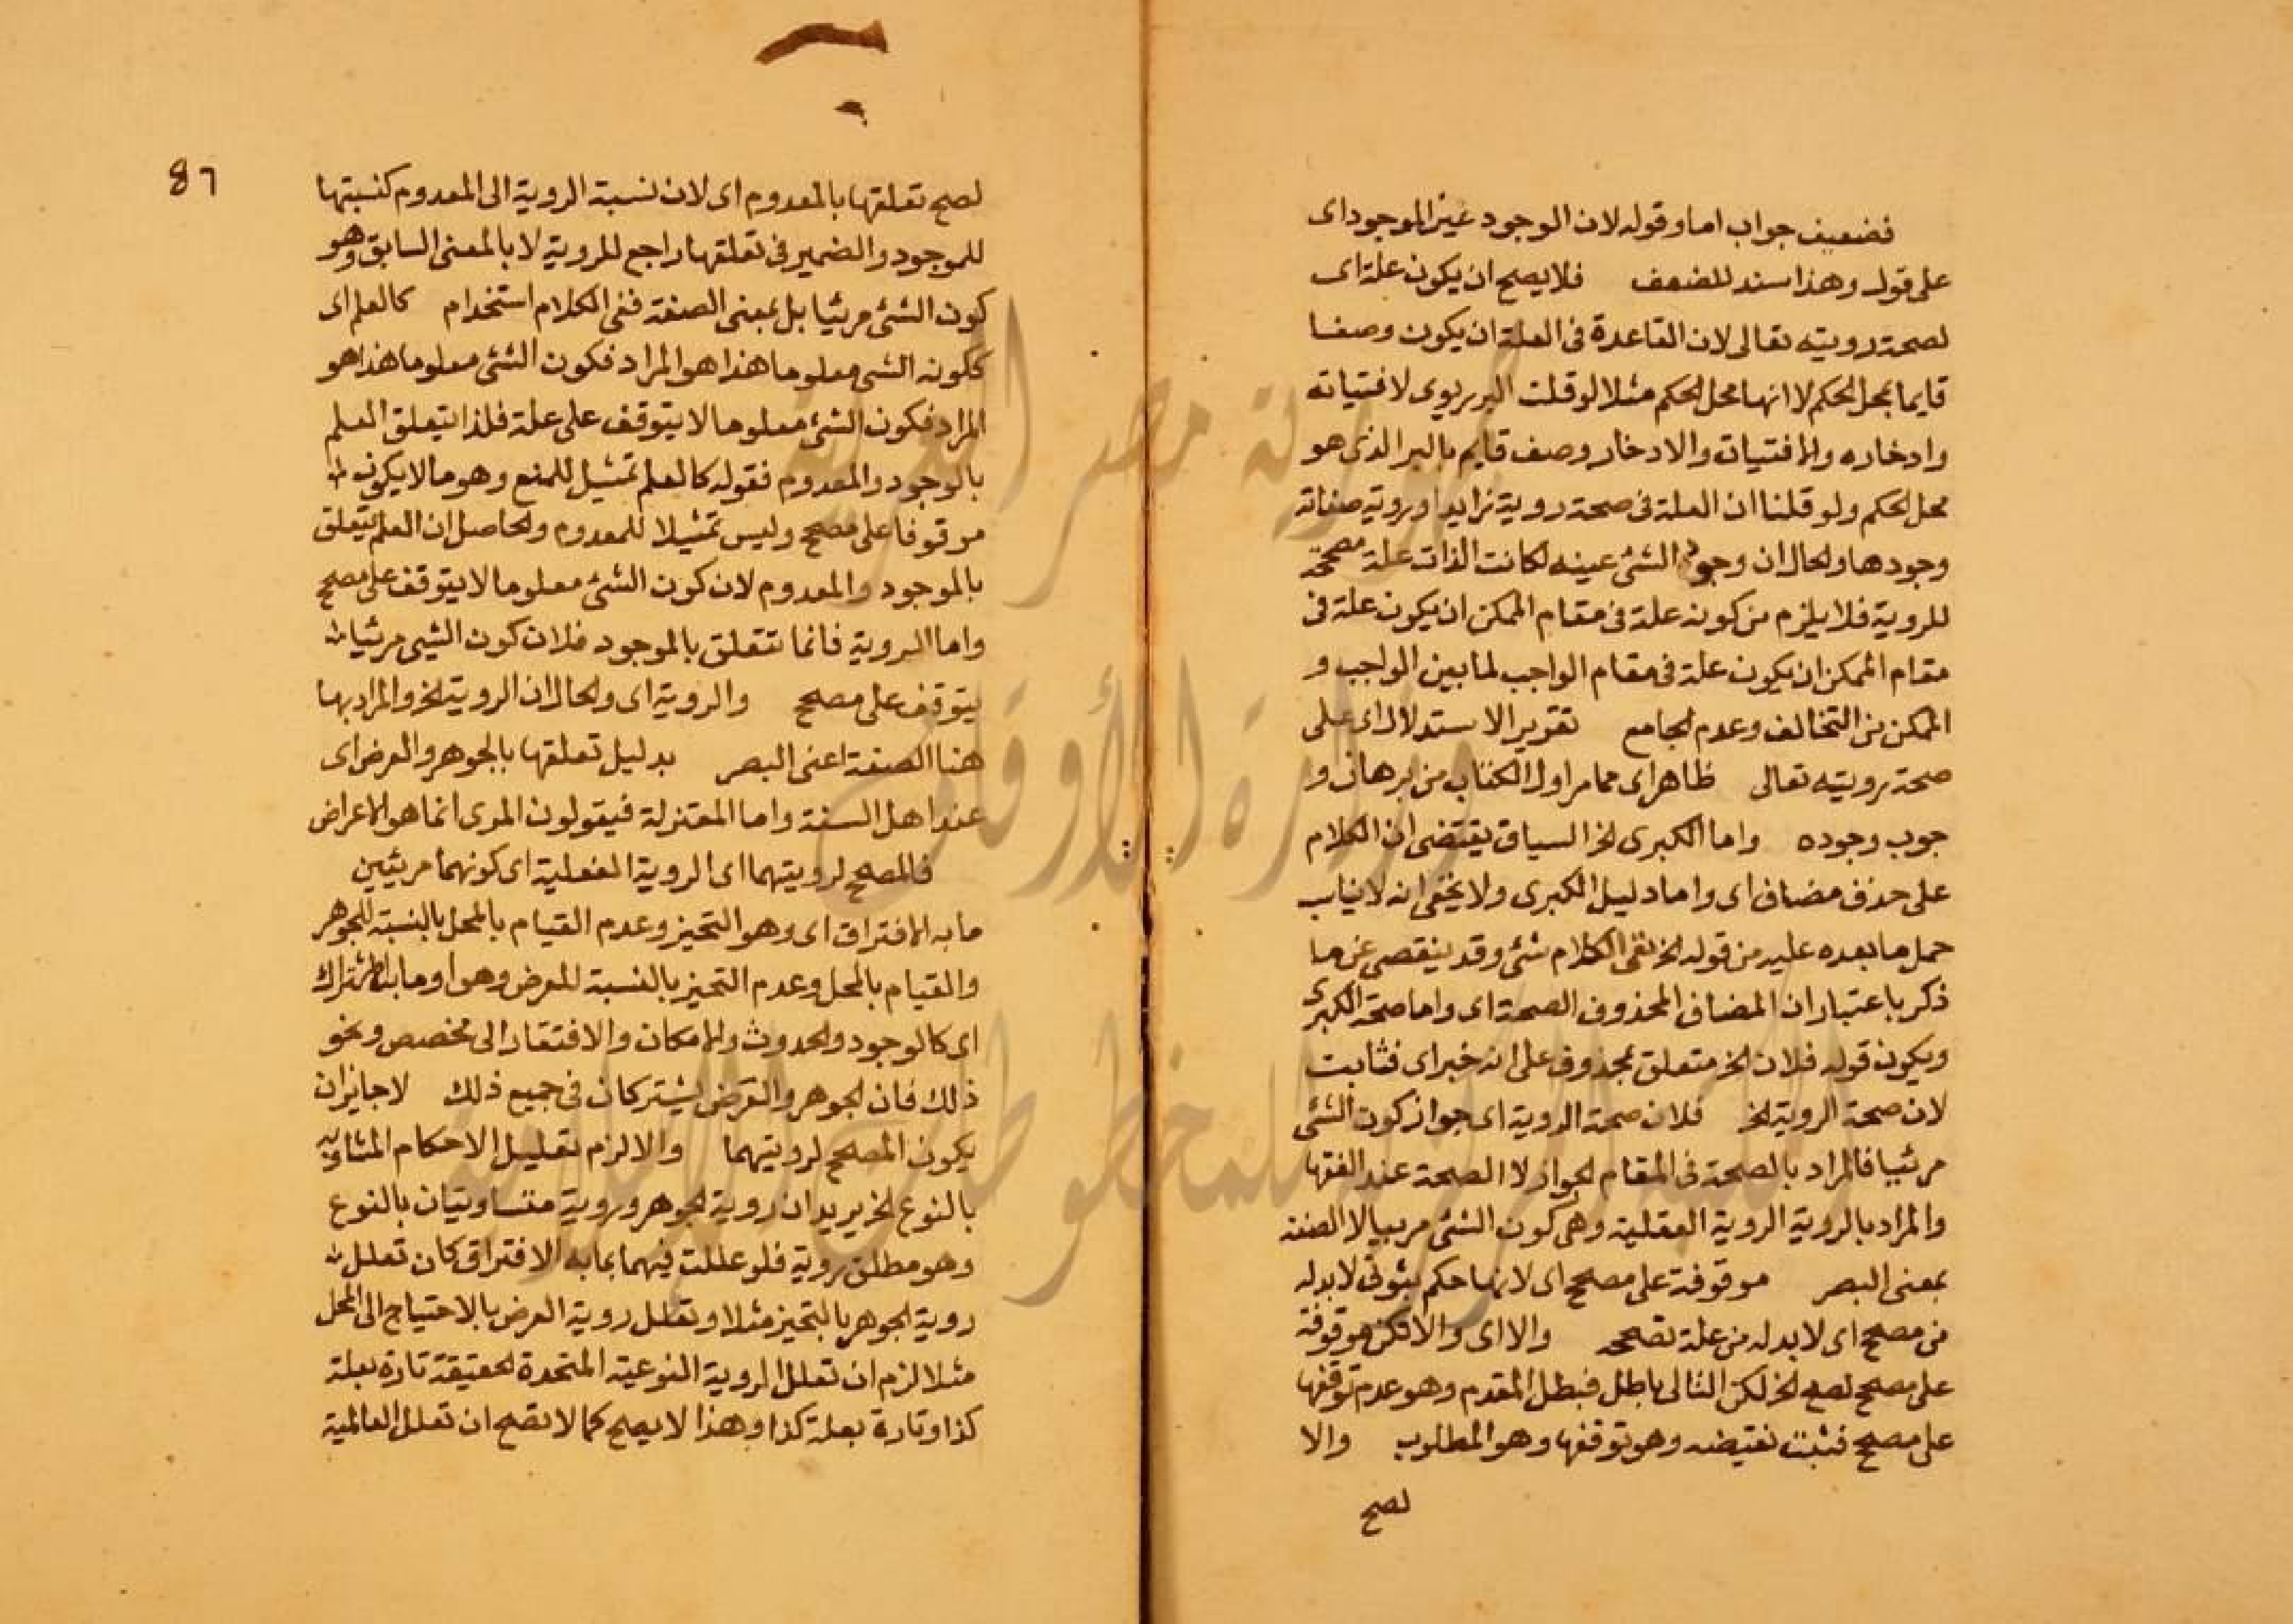 فضعيف جواب اما وقوله لان الوجود عين الموجود اى
على قوله وهذا سند للضعف فلا يصح ان يكون علة اى
لصحة رويته تعالى لان القاعدة فى العلة ان يكون وصفا
قايما بمحل الحكم لا انها محل الحكم مثلا لو قلت البر ربوى لاقتياته
وادخاره والاقتيات والادخار وصف قايم بالبر الذى هو
محل الحكم ولو قلنا ان العلة فى صحة روية زيد او روية صفاته
وجودها والحال ان وجود الشئ عينه لكانت الذات علة مصححة
للروية فلا يلزم من كونه علة فى مقام الممكن ان يكون علة فى
مقام الممكن ان يكون علة فى مقام الواجب لما بين الواجب و
الممكن من التخالف وعدم الجامع تقرير الاستدلال اى على
صحة رويته تعالى ظاهر اى مما مر اول الكتاب من برهان و
جوب وجوده واما الكبرى لخ السياق يقتضى ان الكلام
على حذف مضاف اى واما دليل الكبرى ولا يخفى انه لا يناسب
حمل ما بعده عليه من قوله لخ نفى الكلام شئ وقد ينقصى عن ما
ذكر باعتبار ان المضاف المحذوف الصحة اى واما صحة الكبرى
ويكون قوله فلان لخ متعلق بمحذوف على انه خبر اى فثابت
لان صحة الروية لخ فلان صحة الروية اى جواز كون الشئ
مرئيا فالمراد بالصحة فى المقام الجواز لا الصحة عند الفقها
والمراد بالروية الروية الفعلية وهى كون الشئ مربيا لا الصفة
بمعنى البصر موقوفة على مصحح اى لانها حكم ثبوتى لا بد له
من مصحح اى لا بد له من علة تصححه والا اى والا تكن موقوفة
على مصحح لصح لخ لكن التالى باطل فبطل المقدم وهو عدم توقفها
على مصحح فثبت نقيضه وهو توقفها وهو المطلوب والا
لصح
86
لصح تعلقها بالمعدوم اى لان نسبة الروية الى المعدوم كنسبتها
للموجود والضمير فى تعلقها راجع للروية لا بالمعنى السابق وهو
كون الشئ مرئيا بل بمعنى الصفة ففى الكلام استخدام كالعلم اى
ككونه الشئ معلوما هذا هو المراد فكون الشئ معلوما هذا هو
المراد فكون الشئ معلوما لا يتوقف على علة فلذا يتعلق العلم
بالوجود والمعدوم فقوله كالعلم تمثيل للمنع وهو ما لا يكون
موقوفا على مصحح وليس تمثيلا للمعدوم والحاصل ان العلم يتعلق
بالموجود والمعدوم لان كون الشئ معلوما لا يتوقف على مصحح
واما الروية فانما تتعلق بالموجود فلان كون الشيى مرئيا
يتوقف على مصحح والروية اى والحال ان الروية لخ والمراد بها
هنا الصفة اعنى البصر بدليل تعلقها بالجوهر والعرض اى
عند اهل السنة واما المعتزلة فيقولون المرى انما هو الاعراض
فالمصحح لرويتهما اى الروية الفعلية اى كونهما مرئيين
ما به الافتراق اى وهو التحيز وعدم القيام بالمحل بالنسبة للجوهر
والقيام بالمحل وعدم التحيز بالنسبة للعرض وهو او ما به الاشتراك
اى كالوجود والحدوث والامكان والافتقار الى مخصص ونحو
ذلك فان الجوهر والعرض يشتركان فى جميع ذلك لا جايز ان
يكون المصحح لرويتهما والا لزم تعليل الاحكام المتساويه
بالنوع لخ يريد ان روية الجوهر وروية متساويتان بالنوع
وهو مطلق روية فلو عللت فيهما بما به الافتراق كان تعلل
روية الجوهر بالتحيز مثلا وتعلل روية العرض بالاحتياج الى المحل
مثلا لزم ان تعلل الروية النوعية المتحدة الحقيقة تارة بعلة
كذا وتارة بعلة كذا وهذا لا يصح كما لا تصح ان تعلل العالمية